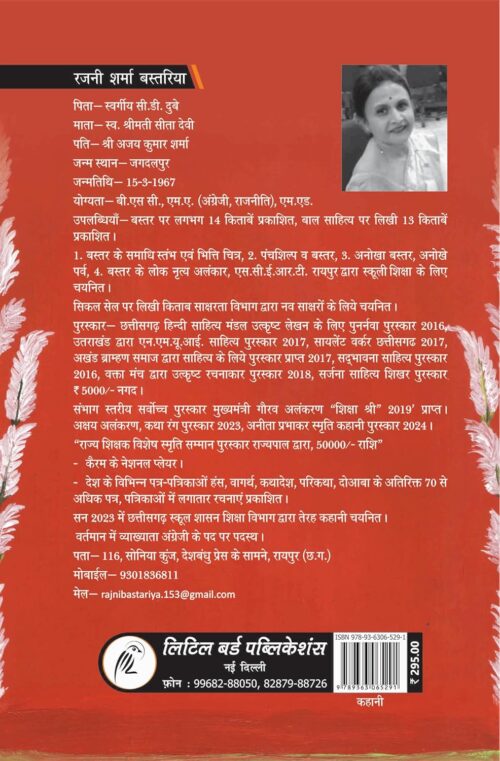 रजनी शर्मा बस्तरिया
पिता— स्वर्गीय सी.डी. दुबे
माता— स्व. श्रीमती सीता देवी
पति— श्री अजय कुमार शर्मा
जन्म स्थान— जगदलपुर
जन्मतिथि— 15-3-1967
योग्यता— बी.एस सी., एम.ए. (अंग्रेजी, राजनीति), एम.एड.
उपलब्धियाँ— बस्तर पर लगभग 14 किताबें प्रकाशित, बाल साहित्य पर लिखी 13 किताबें
प्रकाशित।
1. बस्तर के समाधि स्तंभ एवं भित्ति चित्र, 2. पंचशिल्प व बस्तर, 3. अनोखा बस्तर, अनोखे
पर्व, 4. बस्तर के लोक नृत्य अलंकार, एस.सी.ई.आर.टी. रायपुर द्वारा स्कूली शिक्षा के लिए
चयनित।
सिकल सेल पर लिखी किताब साक्षरता विभाग द्वारा नव साक्षरों के लिये चयनित।
पुरस्कार— छत्तीसगढ़ हिन्दी साहित्य मंडल उत्कृष्ट लेखन के लिए पुनर्नवा पुरस्कार 2016,
उतराखंड द्वारा एन.एम.यू.आई. साहित्य पुरस्कार 2017, सायलेंट वर्कर छत्तीसगढ 2017,
अखंड ब्राम्हण समाज द्वारा साहित्य के लिये पुरस्कार प्राप्त 2017, सद्‌भावना साहित्य पुरस्कार
2016, वक्ता मंच द्वारा उत्कृष्ट रचनाकार पुरस्कार 2018, सर्जना साहित्य शिखर पुरस्कार
₹ 5000/- नगद।
संभाग स्तरीय सर्वोच्च पुरस्कार मुख्यमंत्री गौरव अलंकरण "शिक्षा श्री" 2019' प्राप्त।
अक्षय अलंकरण, कथा रंग पुरस्कार 2023, अनीता प्रभाकर स्मृति कहानी पुरस्कार 2024।
"राज्य शिक्षक विशेष स्मृति सम्मान पुरस्कार राज्यपाल द्वारा, 50000/- राशि"
- कैरम के नेशनल प्लेयर।
- देश के विभिन्न पत्र-पत्रिकाओं हंस, वागर्थ, कथादेश, परिकथा, दोआबा के अतिरिक्त 70 से
अधिक पत्र, पत्रिकाओं में लगातार रचनाएं प्रकाशित।
सन 2023 में छत्तीसगढ़ स्कूल शासन शिक्षा विभाग द्वारा तेरह कहानी चयनित।
वर्तमान में व्याख्याता अंग्रेजी के पद पर पदस्थ।
पता— 116, सोनिया कुंज, देशबंधु प्रेस के सामने, रायपुर (छ.ग.)
मोबाईल- 9301836811
मेल— rajnibastariya.153@gmail.com
लिटिल बर्ड पब्लिकेशंस
नई दिल्ली
फ़ोन : 99682-88050, 82879-88726
ISBN 978-93-6306-529-1
9789363065291
₹ 295.00
कहानी